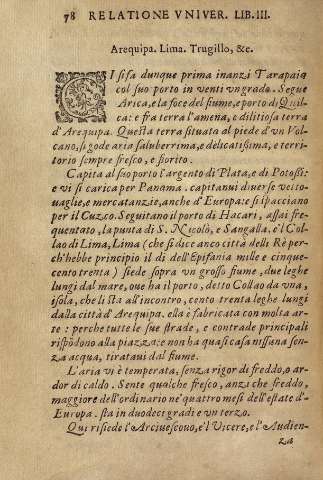 78 RELATIONE VNIVER. LIB. III.
Arequipa. Lima. Trugillo, &c.
QVi si fa dunque prima inanzi Tarapaia
col suo porto in venti vn grado. Segue
Arica, e la foce del fiume, e porto di Quil-
ca: e fra terra l'amena, e dilitiosa terra
d'Arequipa. Questa terra situata al piede d'vn Vol-
cano, si gode aria saluberrima, e delicatissima, e terri-
torio sempre fresco, e fiorito.
Capita al suo porto l'argento di Plata, e di Potossì:
e vi si carica per Panama. capitanui diuerse vetto-
uaglie, e mercatanzie, anche d'Europa: e si spacciano
per il Cuzco. Seguitano il porto di Hacari, assai fre-
quentato, la punta di S. Nicolò, e Sangalla. e'l Col-
lao di Lima, Lima (che si dice anco città delli Rè per-
ch'hebbe principio il dì dell'Epifania mille e cinque-
cento trenta) siede sopra vn grosso fiume, due leghe
lungi dal mare, oue ha il porto, detto Collao da vna,
isola, che li sta all'incontro, cento trenta leghe lungi
dalla città d'Arequipa. ella è fabricata con molta ar-
te: perche tutte le sue strade, e contrade principali
rispōdono alla piazza: e non ha quasi casa nissuna sen-
za acqua, tirataui dal fiume.
L'aria vi è temperata, senza rigor di freddo, o ar-
dor di caldo. Sente qualche fresco, anzi che freddo,
maggiore dell'ordinario ne' quattro mesi dell'estate d'-
Europa. sta in duodeci gradi e vn terzo.
Qui risiede l'Arciuescouo, e'l Vicere, e l'Audien-